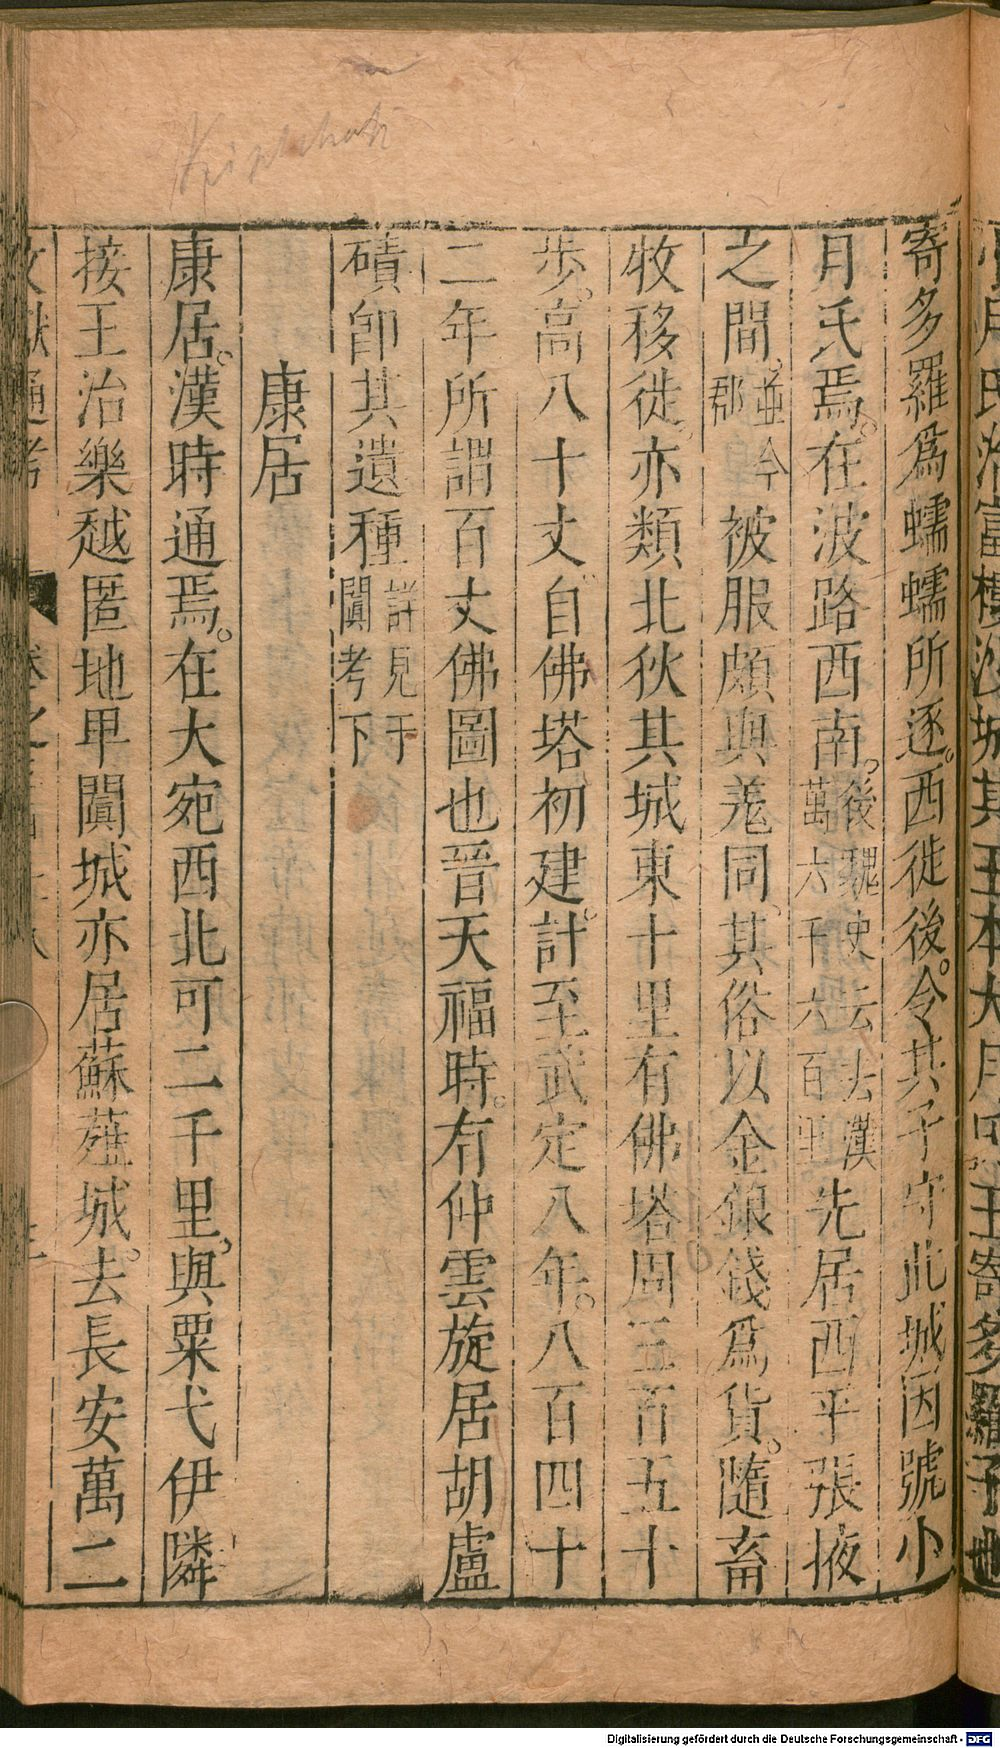 小月氏治富樓沙城其王本大月氏王寄多羅子也
寄多羅爲蠕蠕所逐。西徙後。令其子守此城因號小
月氏焉。在波路西南。後魏史云去漢萬六千六百里先居西平張掖
之間。並今郡被服頗與羌同。其俗以金銀錢爲貨。隨畜
牧移徙。亦類北狄其城東十里有佛塔周三百五十
步。高八十丈自佛塔初建。計至武定八年。八百四十
二年所謂百丈佛圖也晉天福時。有仲雲旋居胡盧
磧卽其遺種詳見于闐考下
康居
康居。漢時通焉。在大宛西北可二千里。與粟弋伊隣
接王治樂越匿地卑闐城亦居蘇薤城。去長安萬二
Digitalisierung gefördert durch die Deutsche Forschungsgemeinschaft - DFG